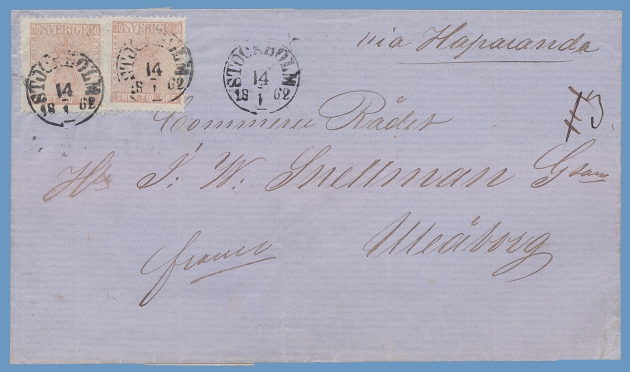 30 SVERIGE 30
30 SVERIGE 30
STOCKHOLM
14
1
18 62
STOCKHOLM
14
1
18 62
STOCKHOLM
14
1
18 62
via Haparanda
Commerce Rådet
Hr J. W. Snellman Gson
Uleåborg
franco